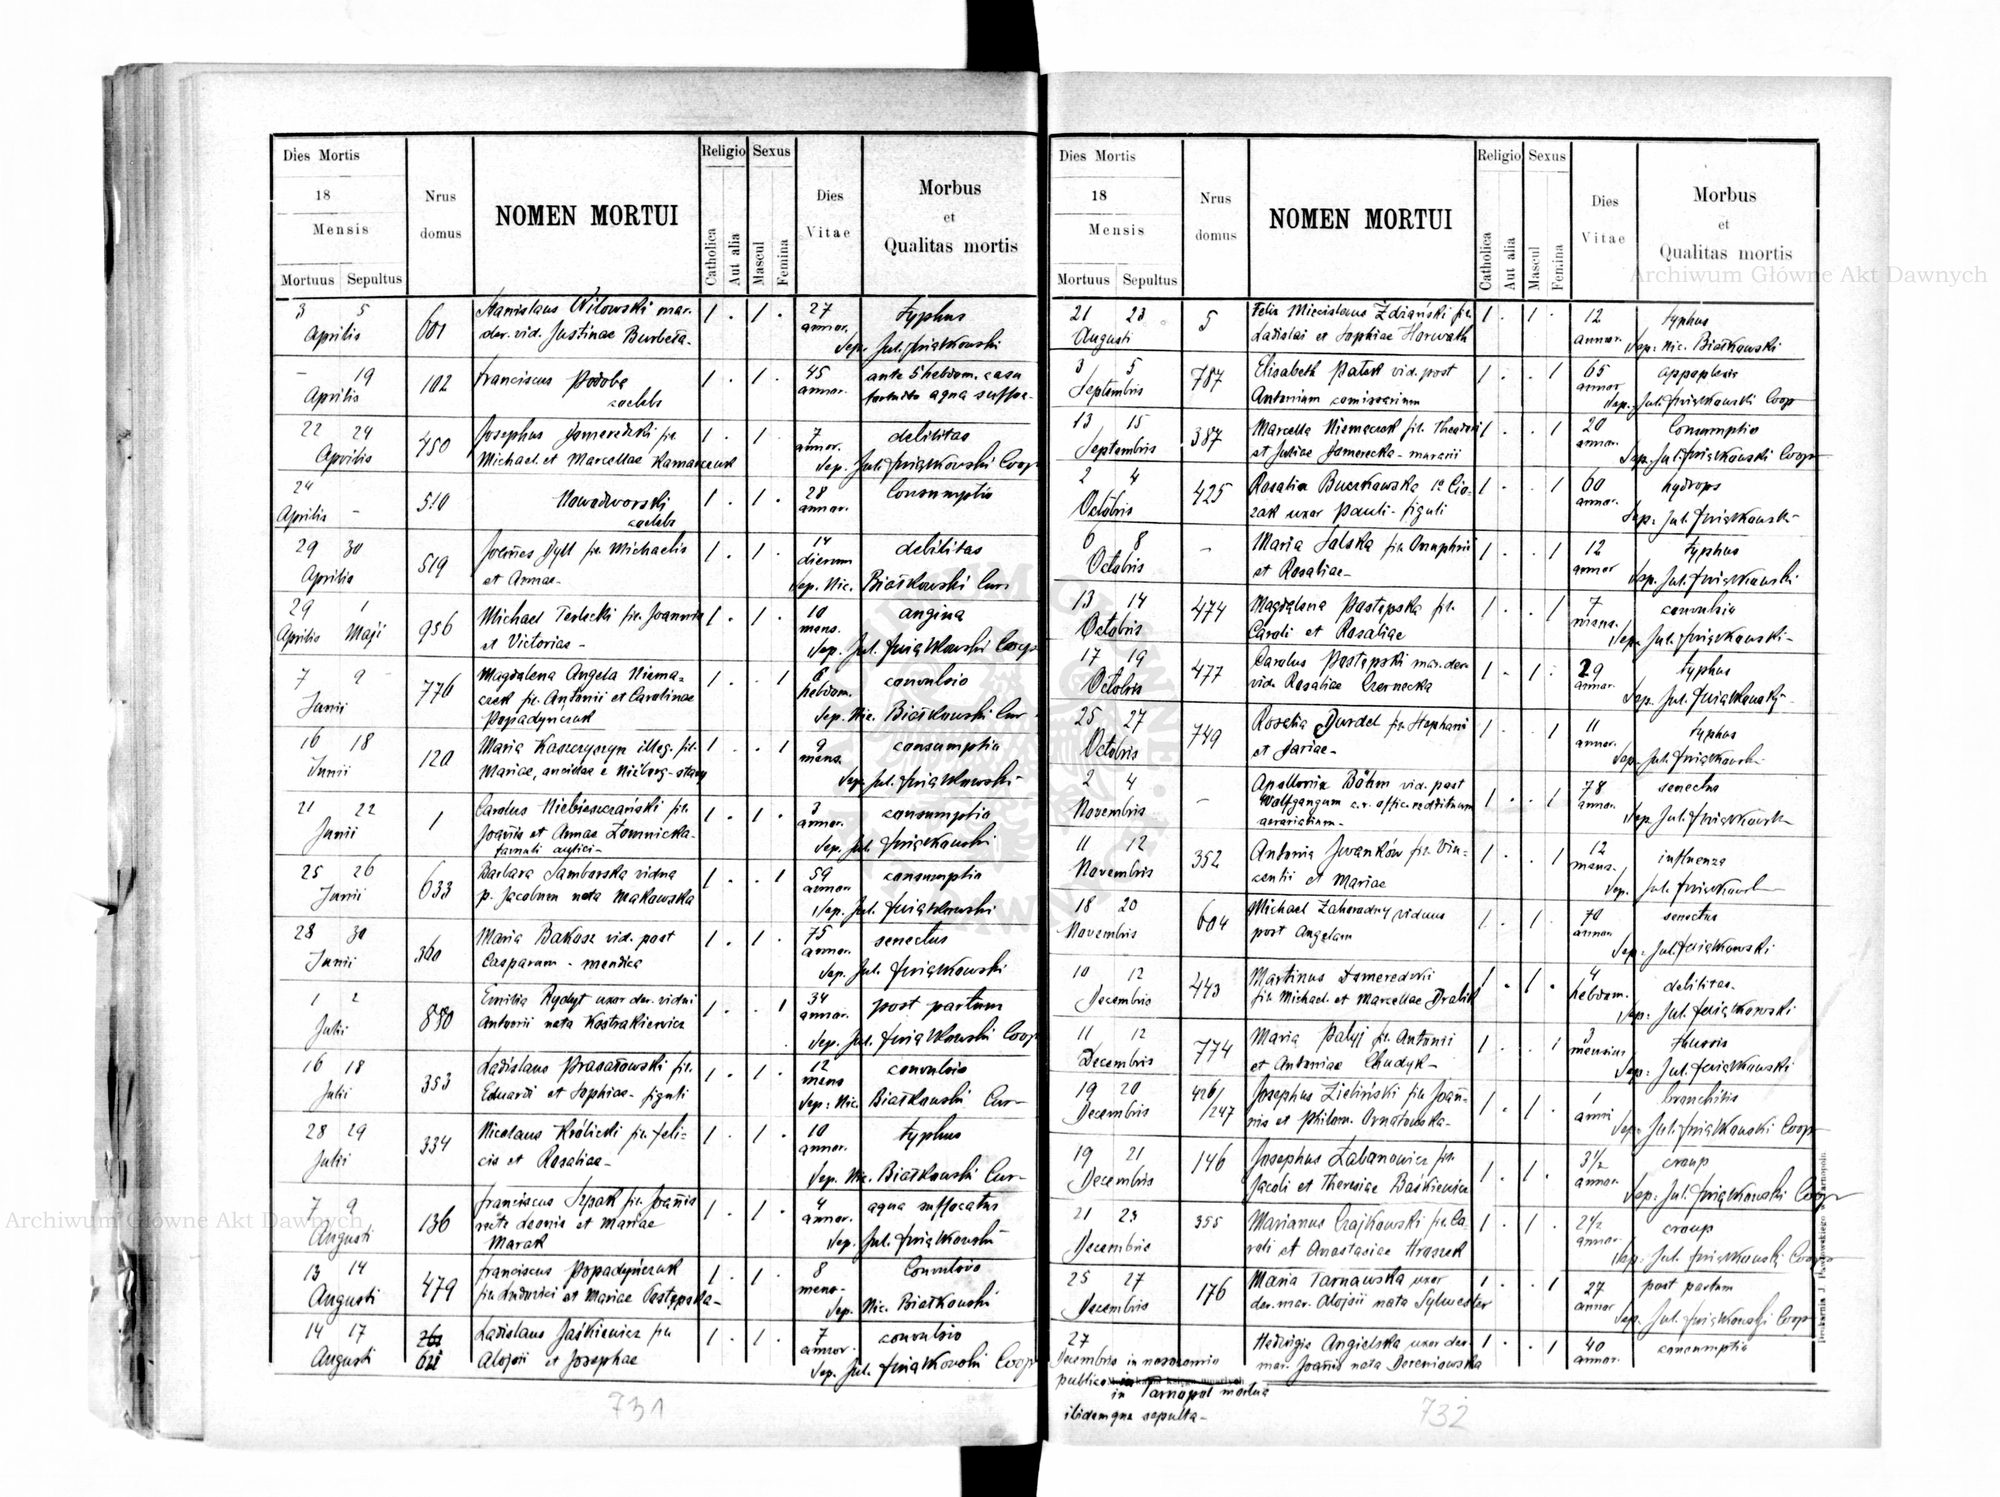 Dies Mortis
18
Mensis
Mortuus Sepultus
Nrus
domus
NOMEN MORTUI
Religio Sexus
Catholica
Aut alia
Mascul
Femina
Dies
Vitae
Morbus
et
Qualitas mortis
3 5
Aprilis
601
Stanislaus Witowski mar.
der. vid. Justinae Burbeła-
1 . 1 .
27
annor.
typhus
Sep. Jul. Świątkowski
- 19
Aprilis
102
Franciscus Podobe
coelebs
1 . 1 .
45
annor.
ante 5 hebdom. casu
fortuito aqua suffoc-
22 24
Aprilis
450
Josephus
Michael. et Marcellae
1 . 1 .
7
annor.
debilitas
Sep. Jul. Świątkowski Coop
24
Aprilis -
510
Nowodworski
coelebs
1 . 1 .
28
annor.
Consumptio
29 30
Aprilis
519
Joannes Dyll fil. Michaelis
et Annae-
1 . 1 .
14
dierum
debilitas
Sep. Nic. Białkowski Cur
29 1
Aprilis Maji
956
Michael Terlecki fil. Joannis
et Victoriae -
1 . 1 .
10
mens.
angina
Sep. Jul. Świątkowski Coop
7 9
Junii
776
Magdalena Angela Niema=
czek fil. Antonii et Carolinae
Popadynczuk
1 . . 1
6
hebdom.
convulsio
Sep. Nic. Białkowski Cur -
16 18
Junii
120
Maria Kaszczyszyn illeg. fil.
Mariae, ancillae e Niżborg-stary
1 . . 1
9
mens.
consumptio
Sep. Jul. Świątkowski-
21 22
Junii
1
Carolus Niebieszczański fil.
Joannis et Annae Łomnicka-
famuli
1 . 1 .
3
annor.
consumptio
Sep. Jul. Świątkowski
25 26
Junii
633
Barbara Samborska vidua
p. Jacobum nata Makowska
1 . . 1
59
annor.
consumptio
Sep. Jul. Świątkowski
28 30
Junii
360
Maria Bakasz vid. post
Casparum - mendica
1 . 1 .
75
annor.
senectus
Sep. Jul. Świątkowski
1 2
Julii
880
Emilia Rydyt uxor der. vidui
Antonii nata Kostrakiewicz
1 . . 1
34
annor.
post partum
Sep. Jul. Świątkowski Coop
16 18
Julii
353
Ladislaus fil.
Eduardi et Sophiae- figuli
1 . 1 .
12
mens
convulsio
Sep: Nic. Białkowski Cur-
28 29
Julii
334
Nicolaus Królicki fil. Feli=
cis et Rosaliae-
1 . 1 .
10
annor.
typhus
Sep. Nic. Białkowski Cur-
7 9
Augusti
136
Franciscus Szpak fil. Joannis
recte Leonis et Mariae
Marak
1 . 1 .
4
annor.
aqua suffocatus
Sep. Jul. Świątkowski
13 14
Augusti
479
Franciscus Popadyńczuk
fil. Ludovici et Mariae Postępska-
1 . 1 .
8
mens.
Convulsio
Sep. Nic. Białkowski
14 17
Augusti
Ladislaus Jaśkiewicz fil.
Aloisii et Josephae
1 . 1 .
7
annor.
convulsio
Sep. Jul. Świątkowski Coop
731
Dies Mortis
18
Mensis
Mortuus Sepultus
Nrus
domus
NOMEN MORTUI
Religio Sexus
Catholica
Aut alia
Mascul
Femina
Dies
Vitae
Morbus
et
Qualitas mortis
21 23
Augusti
5
Felix Miecislaus Zdżański fil.
Ladislai et Sophiae Horwath
1 . 1 .
12
annor.
typhus
Sep: Nic. Białkowski
3 5
Septembris
787
Elisabeth Patek vid. post
Antonium
1 . . 1
65
annor.
appoplexis
Sep. Jul. Świątkowski Coop
13 15
Septembris
387
Marcella Niemaczek fil. Theodori
et Juliae Jamerecka - murarii
1 . . 1
20
annor.
Consumptio
Sep. Jul. Świątkowski Coop
2 4
Octobris
425
Rosalia Buczkowska 1o Cio-
zak uxor Pauli- figuli
1 . . 1
60
annor.
hydrops
Sep. Jul. Świątkowski-
6 8
Octobris
-
Maria Salska fil. Onuphrii
et Rosaliae-
1 . . 1
12
annor
typhus
Sep. Jul. Świątkowski
13 14
Octobris
474
Magdalena Postępska fil.
Caroli et Rosaliae
1 . . 1
7
mens.
convulsio
Sep. Jul. Świątkowski-
17 19
Octobris
477
Carolus Postępski mar. der.
vid. Rosaliae Czernecka
1 . 1 .
29
annor.
typhus
Sep. Jul. Świątkowski-
25 27
Octobris
749
Rosalia Durdel fil. Stephani
et Mariae-
1 . . 1
11
annor.
typhus
Sep. Jul. Świątkowski-
2 4
Novembris
-
Apollonia Böhm vid. post
Wolfgangum c.r. offic. reddituum
aerariatium-
1 . . 1
78
annor.
senectus
Sep. Jul. Świątkowski
11 12
Novembris
352
Antonia Jwanków fil. Vin=
centii et Mariae
1 . . 1
12
mens.
influenza
Sep. Jul. Świątkowski
18 20
Novembris
604
Michael Zahorodny viduus
post Angelam
1 . 1 .
70
annor.
senectus
Sep. Jul. Świątkowski
10 12
Decembris
443
Martinus Domeredzki
fil. Michael. et Marcellae Drabik
1 . 1 .
4
hebdom.
debilitas-
Sep: Jul. Świątkowski
11 12
Decembris
774
Maria Patyj fil. Antonii
et Antoniae Chudyk-
1 . . 1
3
mensium
Sep: Jul. Świątkowski
19 20
Decembris
426/
/247
Josephus Zieliński fil. Joan=
nis et Philom. Ornatowska-
1 . 1 .
1
anni
bronchitis
Sep: Jul. Świątkowski Coop
19 21
Decembris
146
Josephus Łabanowicz fil.
Jacobi et Theresiae Baśkiewicz
1 . 1 .
3½
annor.
croup
Sep: Jul. Świątkowski Coop
21 23
Decembris
355
Marianus Czajkowski fil. Ca-
roli et Anastasiae Hraszek
1 . 1 .
2½
annor.
croup
Sep. Jul. Świątkowski Coop
25 27
Decembris
176
Maria Tarnawska uxor
der. mar. Aloisii nata Sylwester
1 . . 1
27
annor
post partum
Sep. Jul. Świątkowski Coop
27
Decembris in nosocomio
publico in
in Tarnopol mortua
ibidemque sepulta-
Hedvigis Angielska uxor der.
mar. Joannis nata Dereniowska
1 . . 1
40
annor.
consumptio
732
Archiwum Główne Akt Dawnych
Archiwum Główne Akt Dawnych
ARCHIWUM GŁÓWNE AKT DAWNYCH